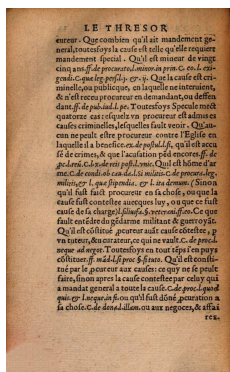 LE THRESOR
cureur. Que combien qu'il ait mandement ge-
neral, toutesfoys la cause est telle qu'elle requiert
mandement special. Qu'il est mineur de vingt
cinq ans. ff. de procurato. l. minor. in prin. C. eo. l. exi-
gendi. C. que leg. pers. l. &. ij. Que la cause est cri-
minelle, ou publicque, en laquelle ne interuient,
& n'est receu procureur en demandant, ou deffen
dant. ff. de pub. iud. l. pe. Toutesfoys Specule mect
quatorze cas: esquelz vn procureur est admis es
causes criminelles, lesquelles fault veoir. Qu'au-
cun ne peult estre procureur contre l'Eglise en
laquelle il a benefice. ex. de postul. l. fi, qu'il est accu
sé de crimes, & que l'acusation pẽd encores. ff. de
Qu'il est hõme d'ar
me. C. de
milit. &. l. qua stipendia. &. l. ita demum. (Sinon
qu'il fust faict procureur en sa chose, ou que la
cause fust contestee auecques luy, ou que ce fust
cause de sa charge) Que
fault entẽdre du gẽdarme militant & guerroyãt.
Qu'il est cõstitué procureur auãt cause cõtestee, p
vn tuteur, & curateur, ce qui ne vault. C. de procl.
neque ad arger. Toutesfoys en tout tẽps l'en puys
cõstituer. Qu'il est consti-
tué par le procureur aux causes: ce quy ne se peult
faire, sinon apres la cause contestee par celuy qui
a mandat general a toute la cause. C. de proc. l. quod
quis. &. l. neque. ou qu'il fust dõné procuration a
sa chose. C. de donad. illam. ou aux negoces, & affai
res.